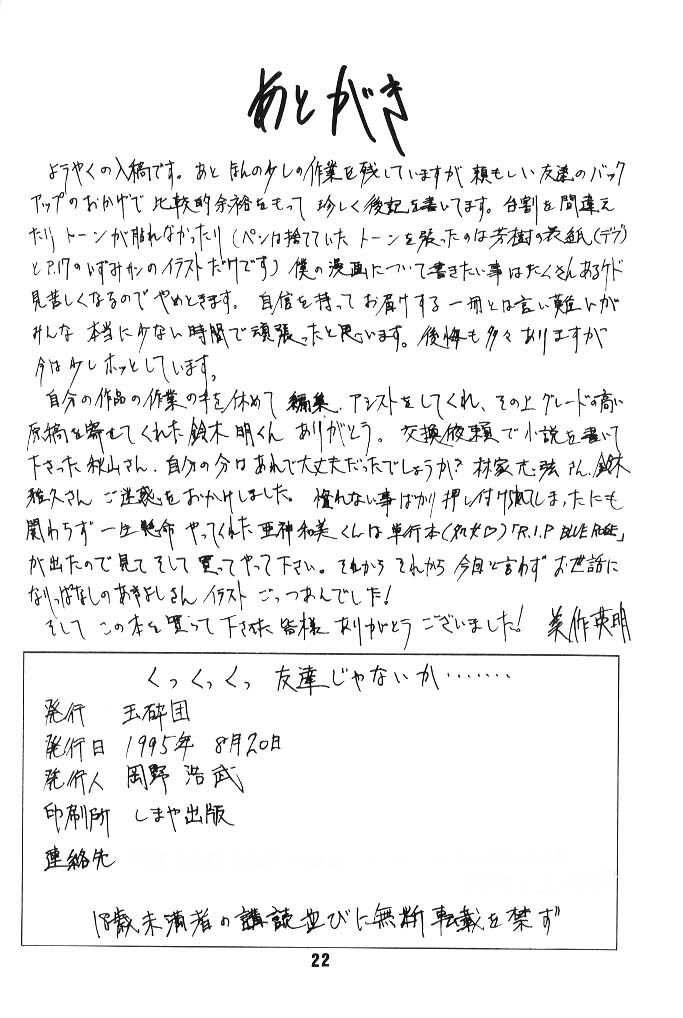 あとがき
ようやくの入稿です。あと ほんの少しの作業を残していますが 頼もしい友達のバック
アップのおかげで 比較的余裕をもって 珍しく後記を書いてます。台割を間違え
たり トーンが貼れなかったり(ペンは捨てていた トーンを張ったのは芳樹の表紙(デブ)
とP.17のいずみかのイラストだけです)僕の漫画について書きたい事はたくさんあるケド
見苦しくなるのでやめときます。自信を持ってお届けする一冊とは言い難いが
みんな 本当に少ない時間で頑張ったと思います。後悔も多々ありますが
今は少しホッとしています。
自分の作品の作業の手を休めて 編集、アシストをしてくれ、その上グレードの高い
原稿を寄せてくれた鈴木明くん ありがとう。交換依頼で小説を書いて
下さった秋山さん、自分の分はあれで大丈夫だったでしょうか?林家志弦さん、鈴木
雅久さん ご迷惑をおかけしました。慣れない事ばかり押し付けられてしまったにも
関わらず一生懸命 やってくれた亜神和美くんは単行本(処女♡)「R.I.P BLUE ROSE」
が出たので見てそして買ってやって下さい。それから それから 今回と言わず お世話に
なりっぱなしのあきよしさん イラスト ごっつあんでした!
そして この本を買って下さった皆様 ありがとうございました! 美作英明
くっくっくっ 友達じゃないか.......
発行 玉砕団
発行日 1995年 8月20日
発行人 岡野 浩武
印刷所 しまや出版
連絡先
18歳未満者の講読並びに無断転載を禁ず
22